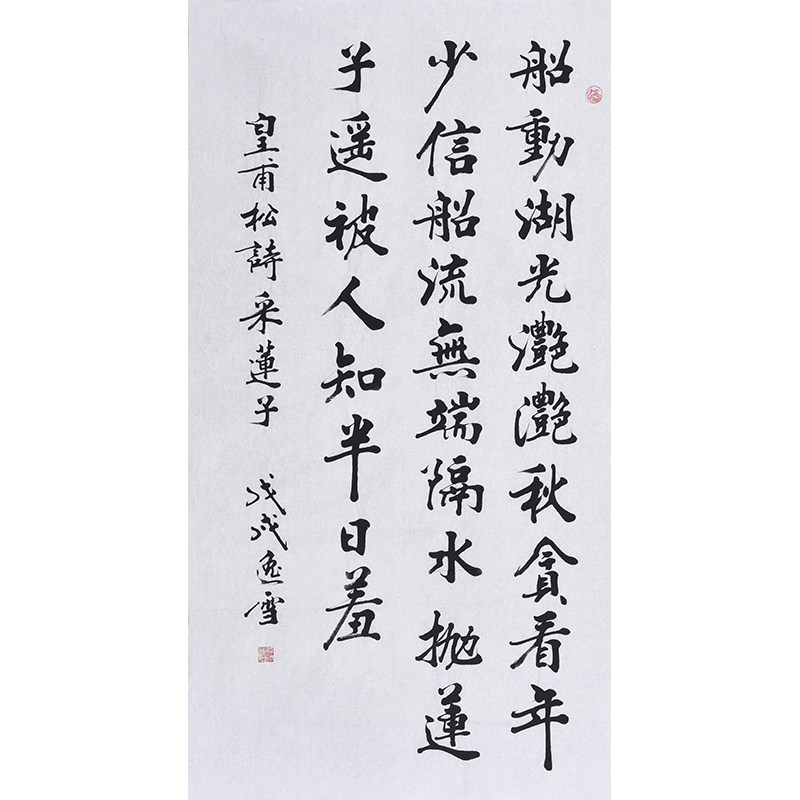 船動湖光灩灩秋貪看年
少信船流無端隔水抛蓮
子遥被人知半日羞
皇甫松詩采蓮子 戊戌逸雪